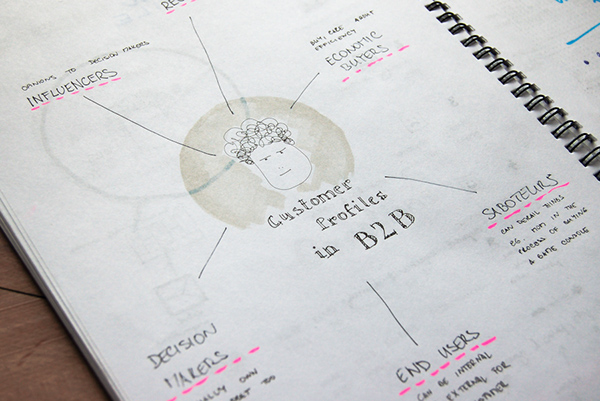 RE
OPINIONS TO DECISION MAKERS
INFLUENCERS
BUY, CARE ABOUT
EFFICIENCY
ECONOMIC
BUYERS
Customer
Profiles
in B2B
SABOTEURS
CAN DERAIL THINKS
EG MOM IN THE
PROCESS OF BUYING
A GAME CONSOLE
DECISION
MAKERS
END USERS
CAN BE INTERNAL
EXTERNAL FOR